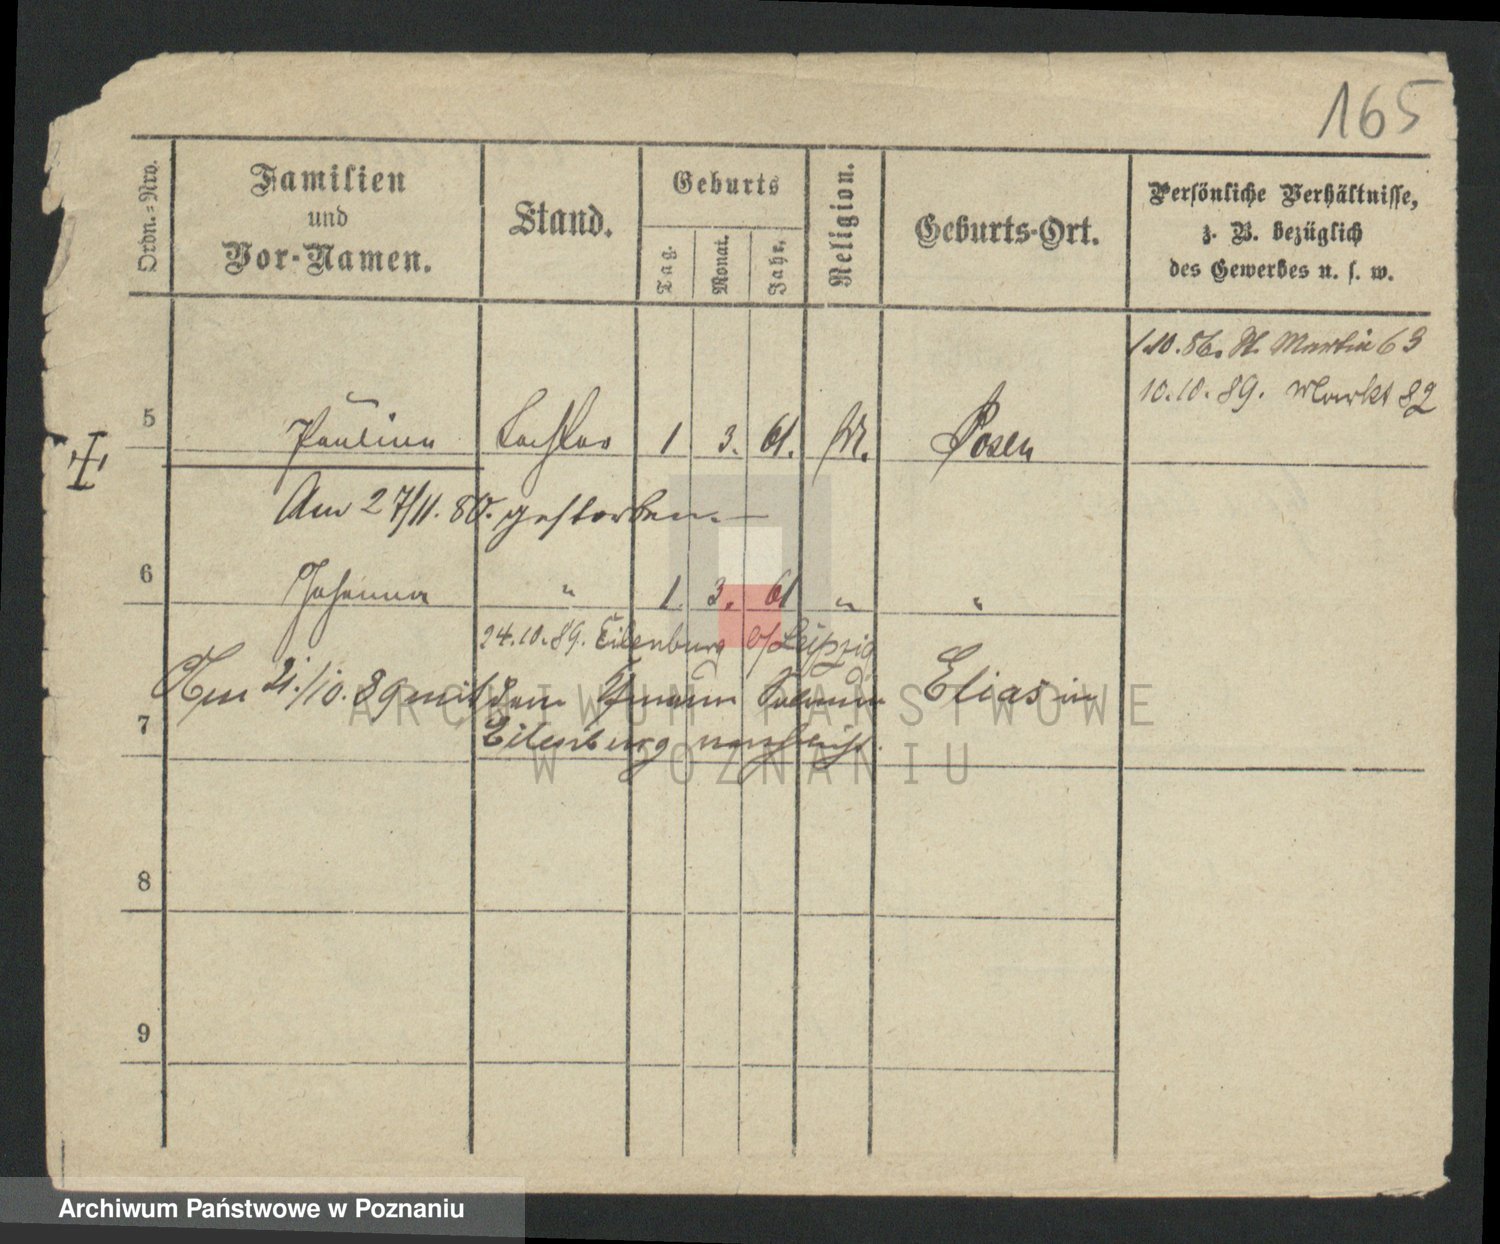 165
Ordn.=Nro.
Familien
und
Vor-Namen.
Stand.
Geburts
Tag.
Monat.
Jahr.
Religion.
Geburts-Ort.
Persönliche Verhältnisse,
z. B. bezüglich
des Gewerbes u. s. w.
1.10.86. St. Martin 63
10.10.89. Markt 82
5 Pauline Tochter 1 3. 61. M. Posen
Am 27/11. 80. gestorben.
6 Johanna " 1. 3. 61 " "
24.10.89. Eilenburg b/Leipzig
Am 21./10. 89 mit dem Kfmann Salomon Elias in
7 Eilenburg verheir.
8
9
ARCHIWUM PAŃSTWOWE
W POZNANIU
Archiwum Państwowe w Poznaniu